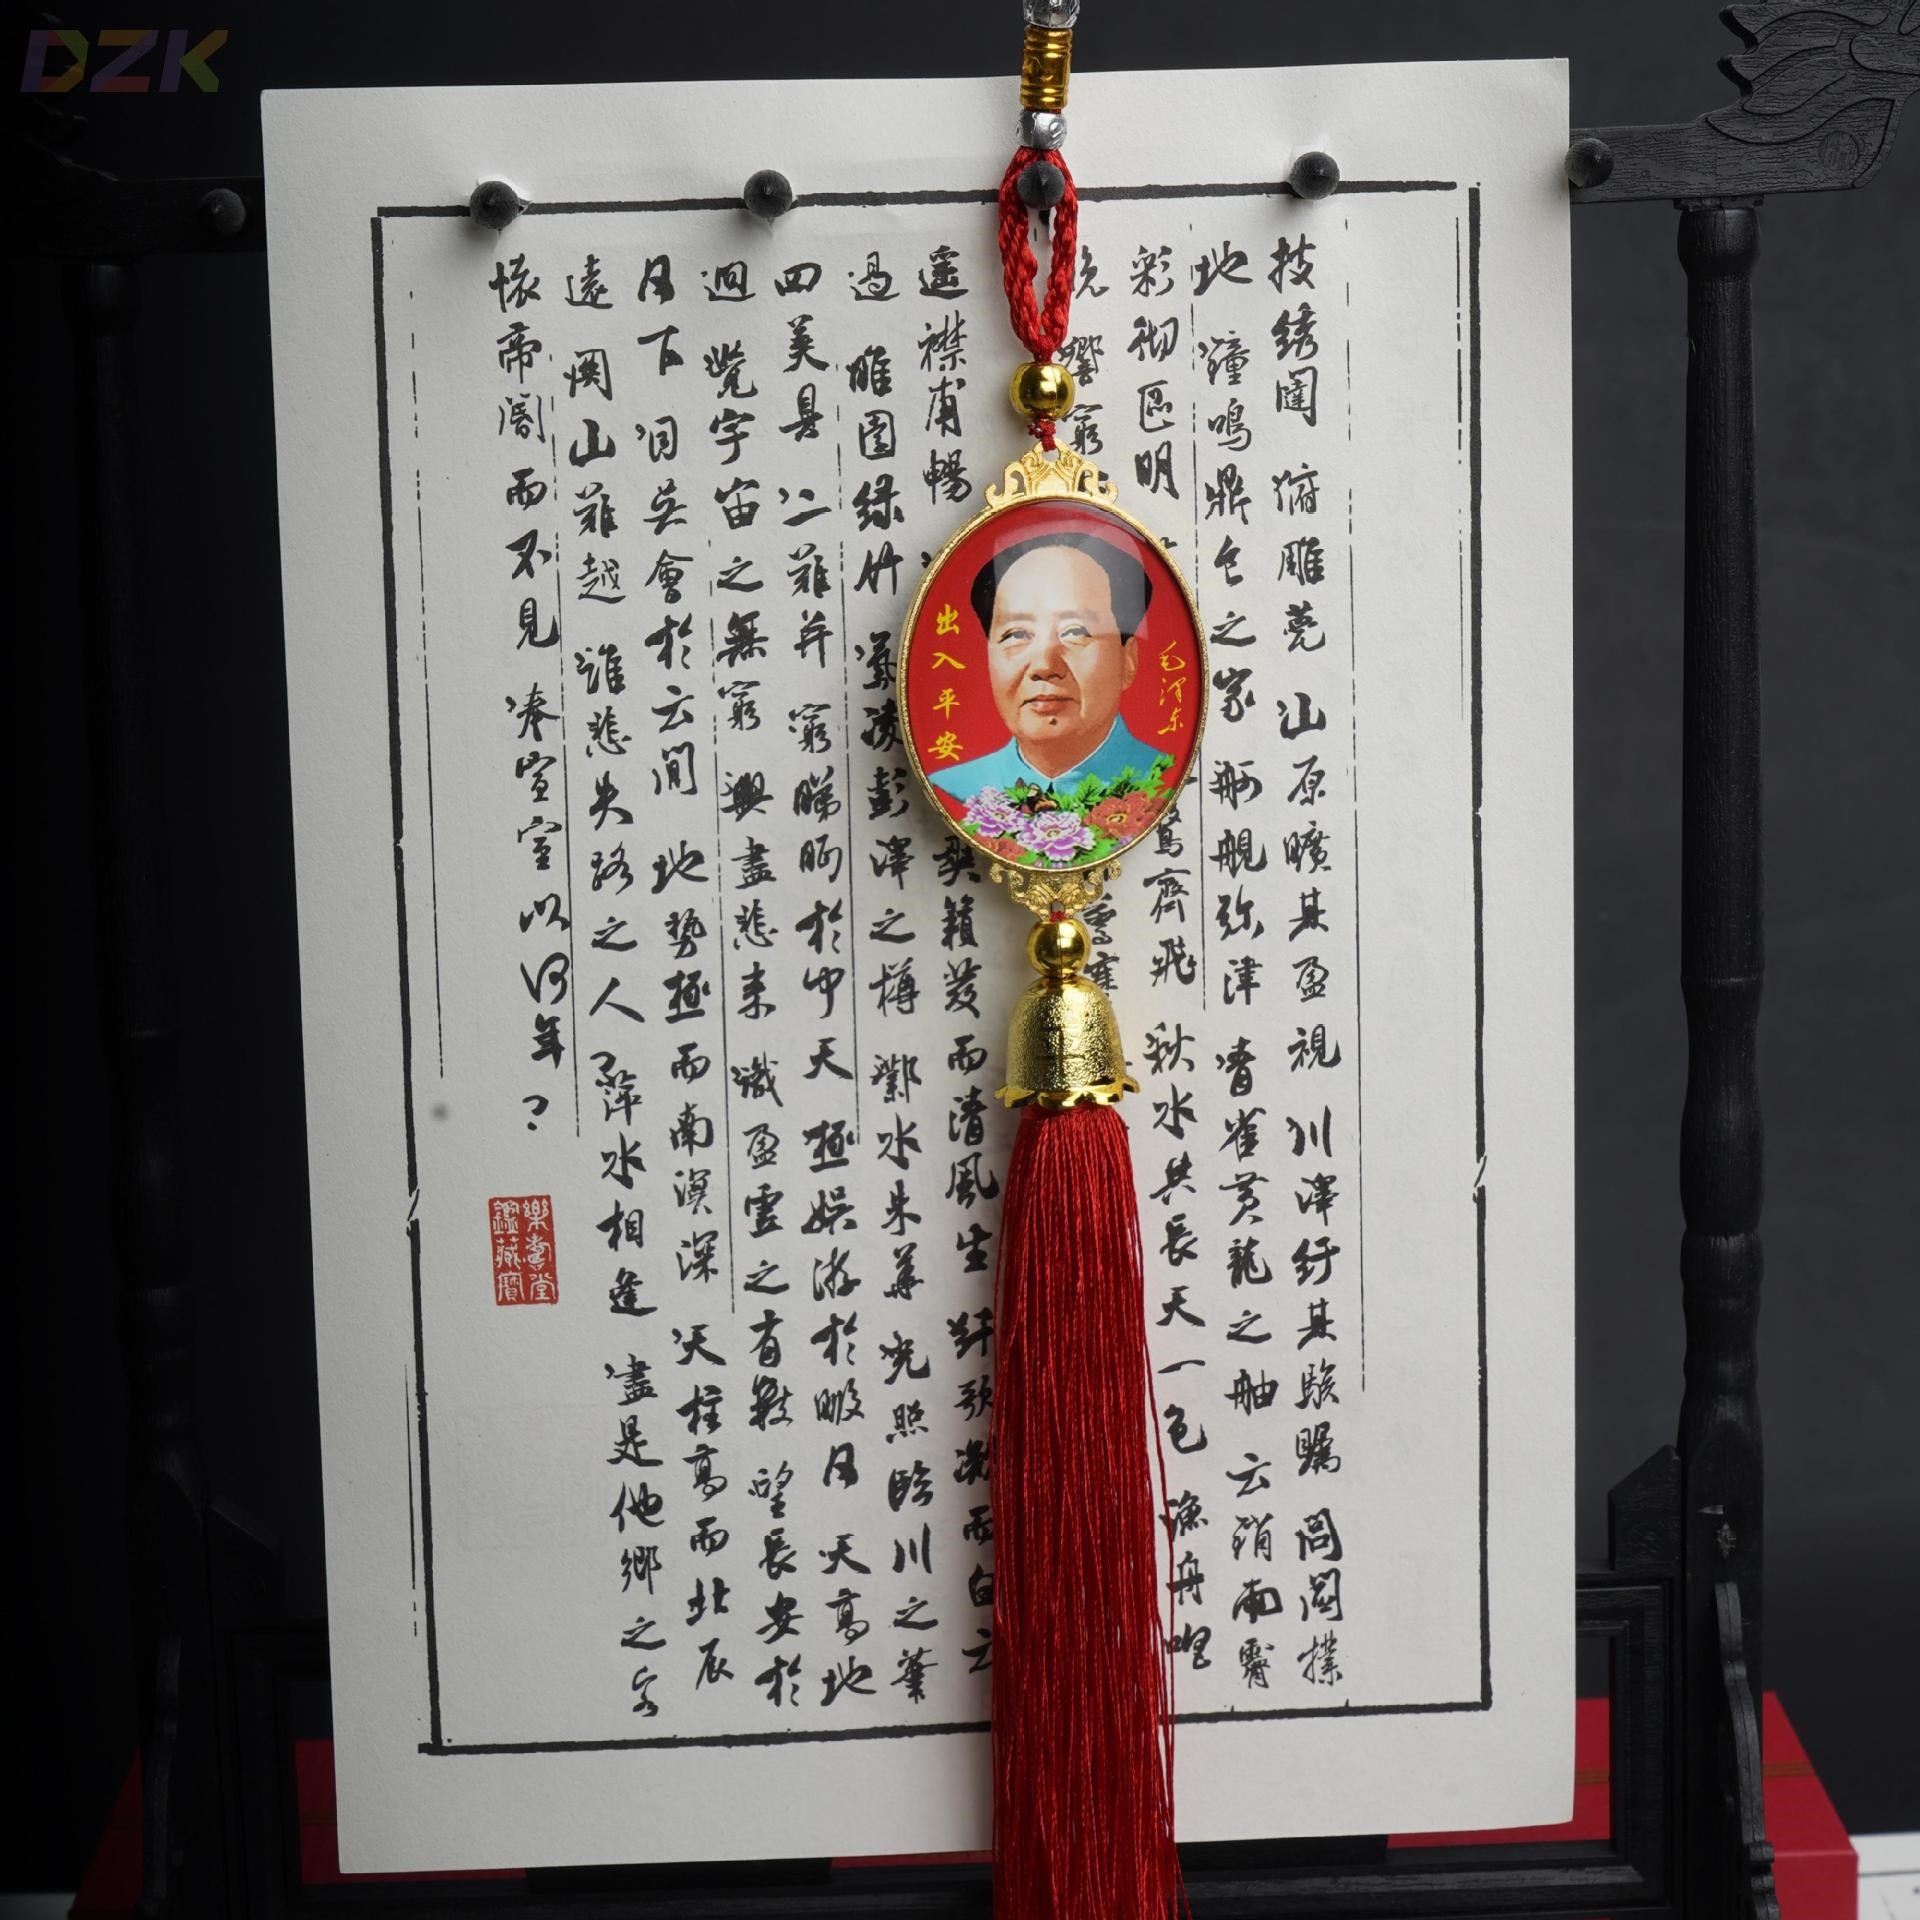 DZK
披绣闥 俯雕甍 山原曠其盈視 川澤紆其駭矚 閭閻撲
地 鐘鳴鼎食之家 舸艦弥津 青雀黄龍之舳 云销雨霽
彩彻區明 鶩齊飛 秋水共長天一色 漁舟唱
晚 響窮
遥襟甫暢 爽籁發而清風生 纤歌凝而白云
遏 睢園绿竹 氣凌彭澤之樽 鄴水朱華 光照臨川之筆
四美具 二難并 窮睇眄於中天 極娛游於暇日 天高地
迥 覺宇宙之無窮 興盡悲来 識盈虚之有數 望長安於
日下 目吴會於云間 地勢極而南溟深 天柱高而北辰
遠 関山難越 誰悲失路之人 萍水相逢 盡是他鄉之客
懷帝閽而不見 奉宣室以何年?
出入平安
毛泽东
樂壽堂
鑑藏寶